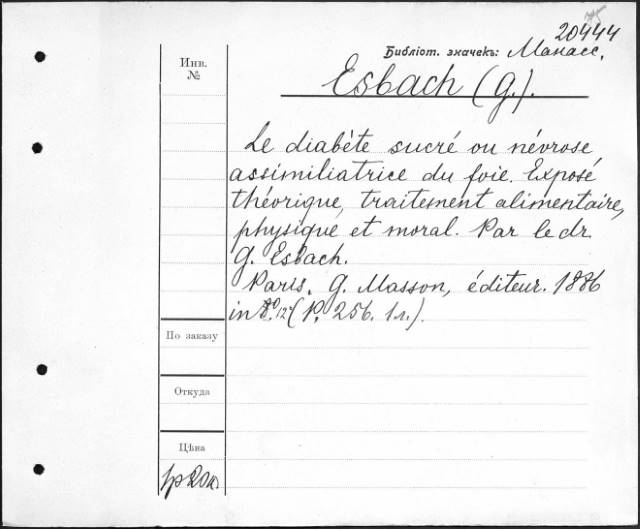 20444
Библіот. значекъ: Манасс.
Инв.
№
Esbach (G.).
Le diabète sucré ou névrose
assimiliatrice du foie. Exposé
théorique, traitement alimentaire,
physique et moral. Par le dr
G. Esbach.
Paris. G. Masson, éditeur. 1886
in 8º. 12º (P. 256. 1 л.).
По заказу
Откуда
Цѣна
1р 20к